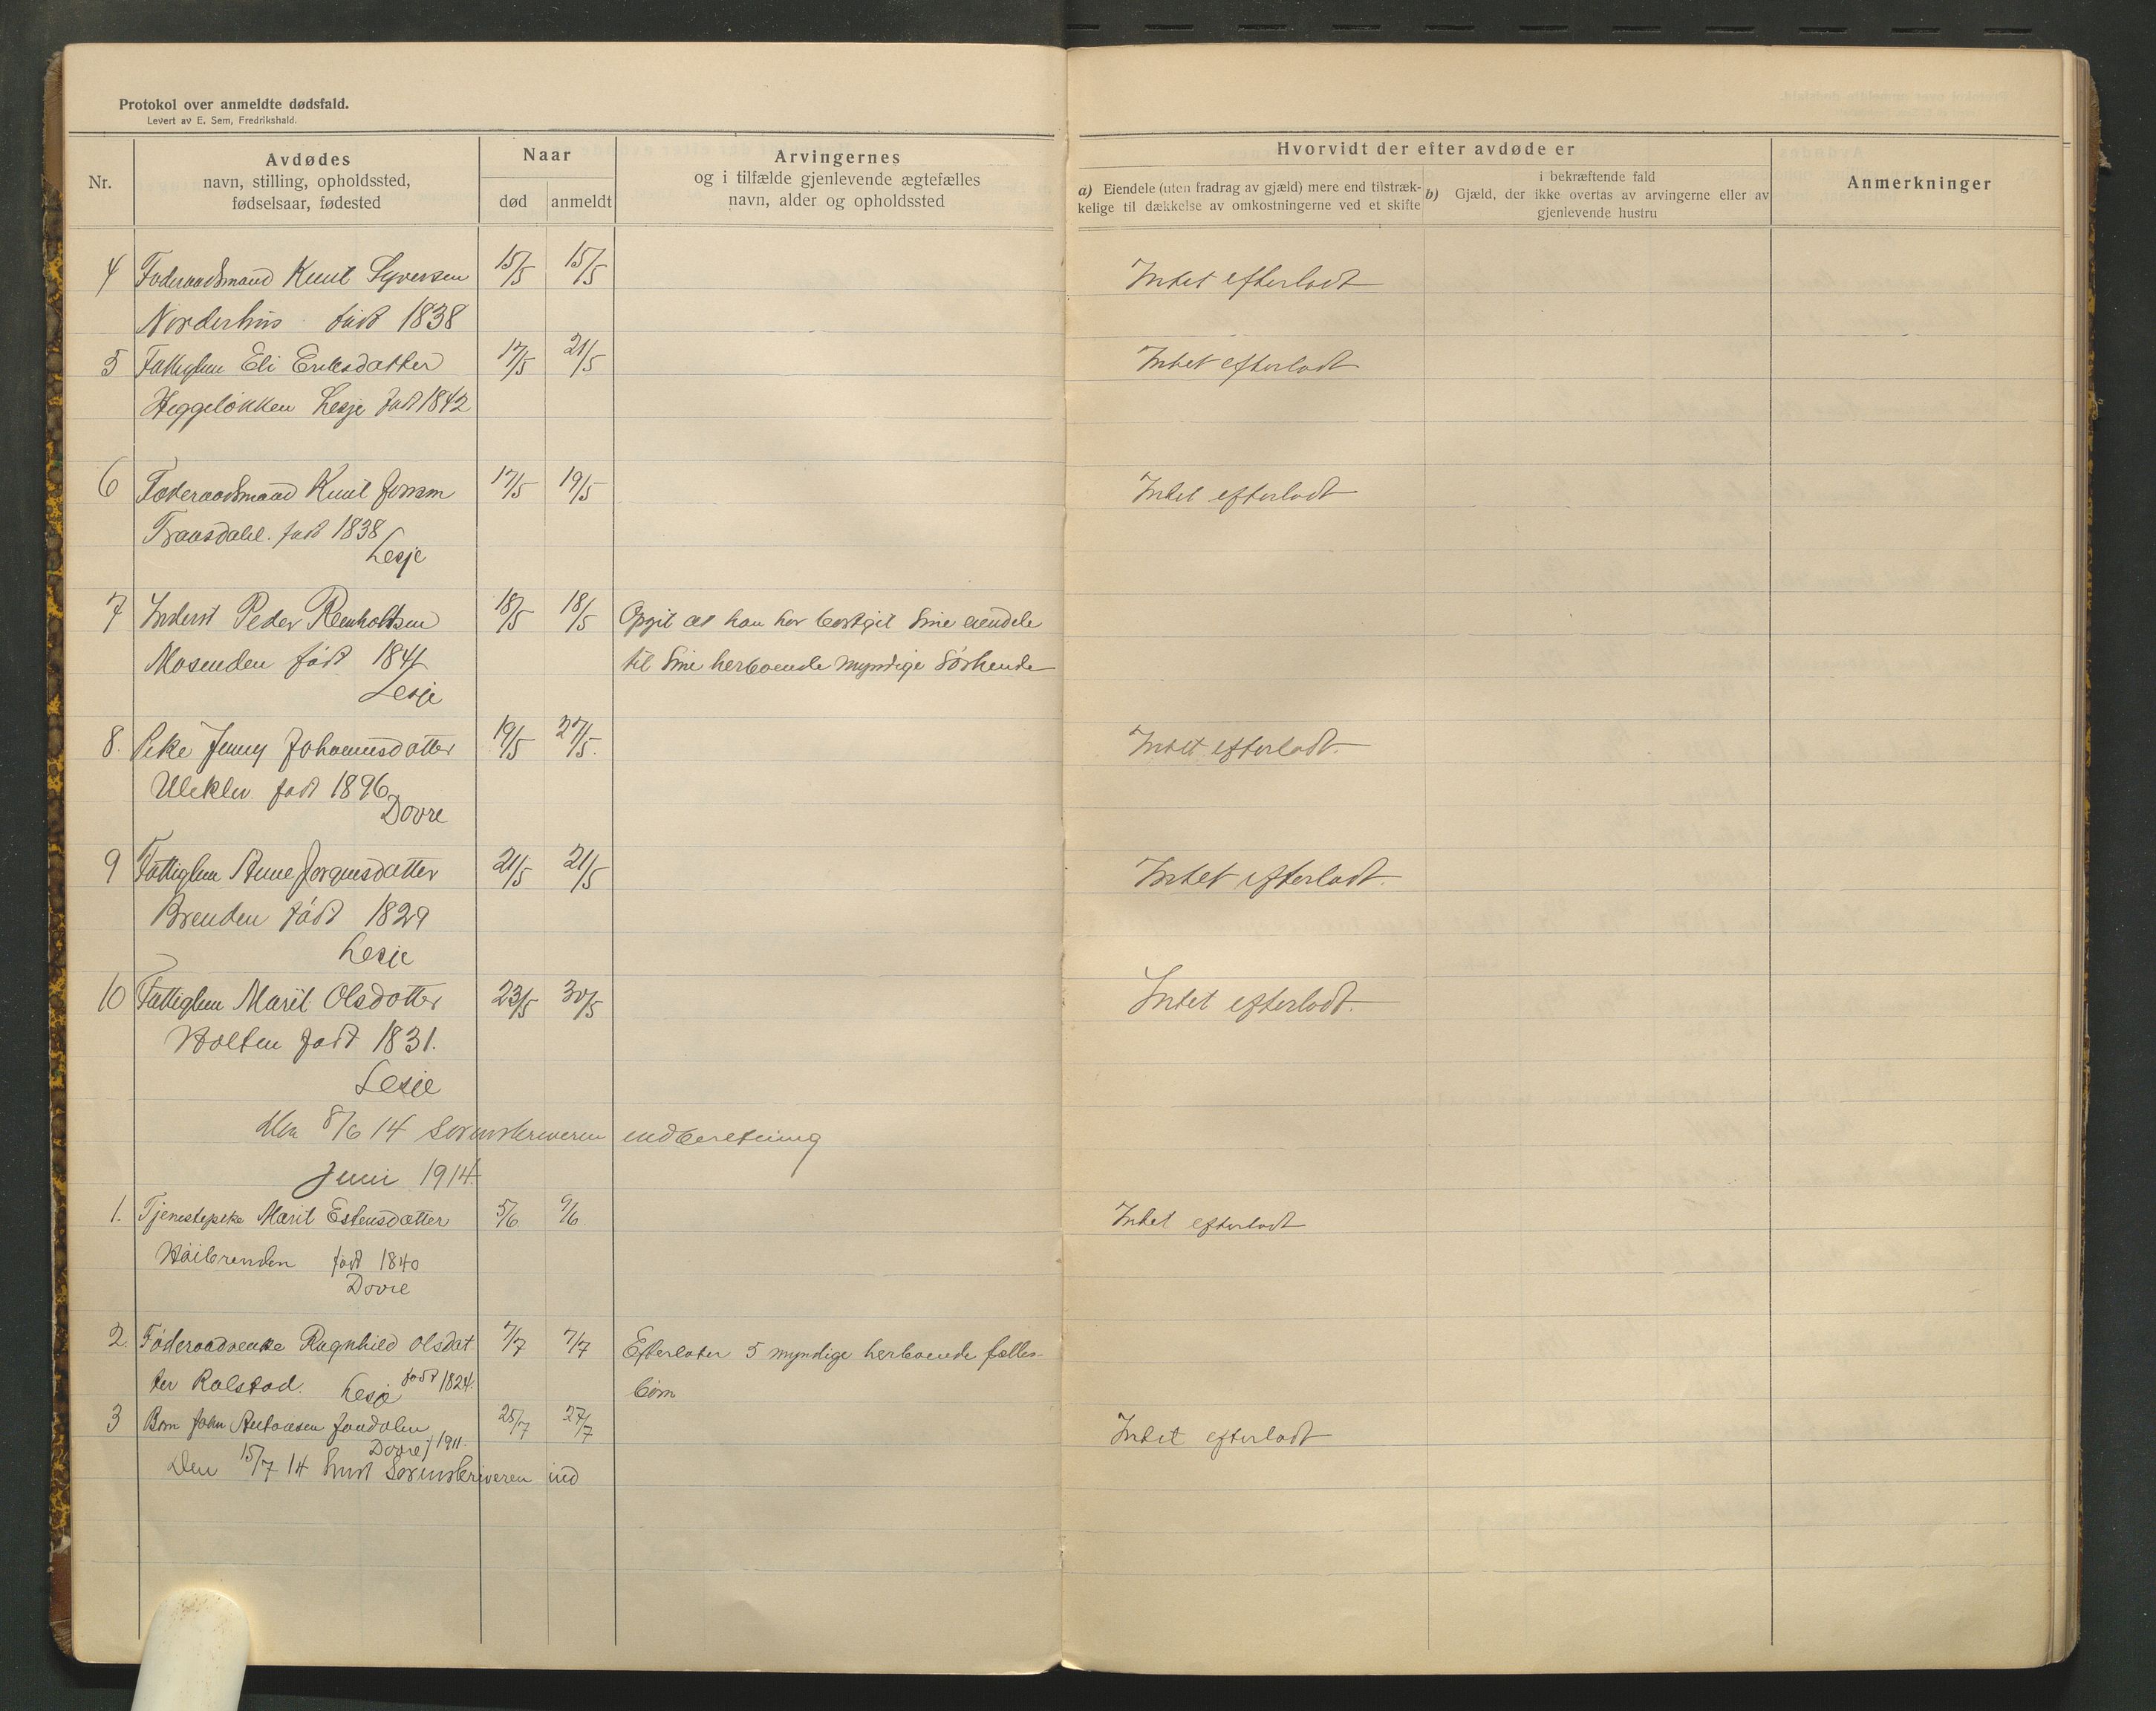 Protokol over anmeldte dødsfald.
Levert av E. Sem, Fredrikshald.
Nr.
Avdødes
navn, stilling, opholdssted,
fødselsaar, fødested
Naar
død
anmeldt
Arvingernes
og i tilfælde gjenlevende ægtefælles
navn, alder og opholdssted
Hvorvidt der efter avdøde er
a) Eiendele (uten fradrag av gjæld) mere end tilstræk-
kelige til dækkelse av omkostningerne ved et skifte
i bekræftende fald
b) Gjæld, der ikke overtas av arvingerne eller av
gjenlevende hustru
Anmerkninger
4 Føderaadsmand Knut Syversen 15/5 15/5 Intet efterladt
Norderhus født 1838
5 Fattiglem Eli Eriksdatter 17/5 21/5 Intet efterladt
Heggeløkken Lesje født 1842
6 Føderaadsmand Knut 17/5 19/5 Intet efterladt
født 1838
Lesje
7 Inderst Peder 18/5 18/5 Opgit at han har bortgit sine eiendele
Mosenden født 1841 til sine herboende myndige søskende
Lesje
8. Pike Jenny Johannesdatter 19/5 27/5. Intet efterladt.
Uleklev født 1896
Dovre
9 Fattiglem Anne Jørgensdatter 21/5 21/5 Intet efterladt.
Brenden født 1829
Lesje
10 Fattiglem Marit Olsdatter 23/5 30/5 Intet efterladt.
Holten født 1831.
Lesje
Den 8/6 14 Sorenskriveren indberetning
Juni 1914.
1. Tjenestepike Marit Estensdatter 5/6 9/6. Intet efterladt
Høibrenden født 1840
Dovre
2. Føderaadsenke Ragnhild Olsdat 7/7 7/7 Efterlater 5 myndige herboende fælles-
ter Rolstad. Lesje født 1824. børn
3 Barn John Jondalen 25/7 27/7 Intet efterladt
Dovre f 1911.
Den 15/7 14 Sendt Sorenskriveren ind